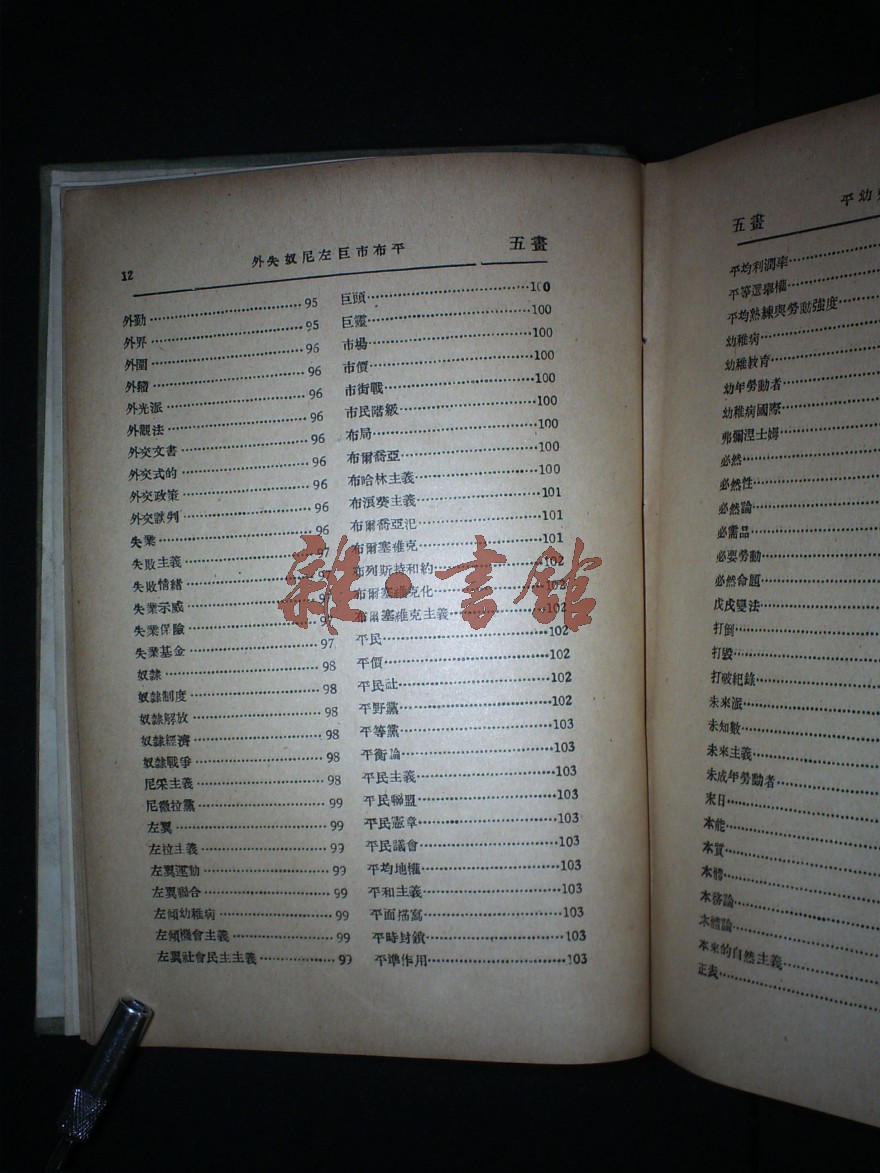 12
外失奴尼左巨市布平
五畫
外勤 95
外界 95
外圍 96
外鑠 96
外光派 96
外觀法 96
外交文書 96
外交式的 96
外交政策 96
外交談判 96
失業 96
失敗主義 97
失敗情緒 97
失業示威 97
失業保險 97
失業基金 97
奴隸 98
奴隸制度 98
奴隸解放 98
奴隸經濟 98
奴隸戰爭 98
尼采主義 98
尼微拉黨 99
左翼 99
左拉主義 99
左翼運動 99
左翼聯合 99
左傾幼稚病 99
左傾機會主義 99
左翼社會民主主義 99
巨頭 100
巨靈 100
市場 100
市價 100
市街戰 100
市民階級 100
布局 100
布爾喬亞 100
布哈林主義 100
布滇葵主義 101
布爾喬亞氾 101
布爾塞維克 101
布列斯特和約 102
布爾塞維克化 102
布爾塞維克主義 102
平民 102
平價 102
平民社 102
平野黨 102
平等黨 103
平衡論 103
平民主義 103
平民聯盟 103
平民憲章 103
平民議會 103
平均地權 103
平和主義 103
平面描寫 103
平時封鎖 103
平準作用 103
雜·書館
五畫
平幼
平均利潤率
平等選舉權
平均熟練與勞動強度
幼稚病
幼稚教育
幼年勞動者
幼稚病國際
弗爾涅士姆
必然
必然性
必然論
必需品
必要勞動
必然命題
戊戌變法
打倒
打毀
打破紀錄
未來派
未知數
未來主義
未成年勞動者
末日
本能
本質
本體
本務論
本體論
本來的自然主義
正表